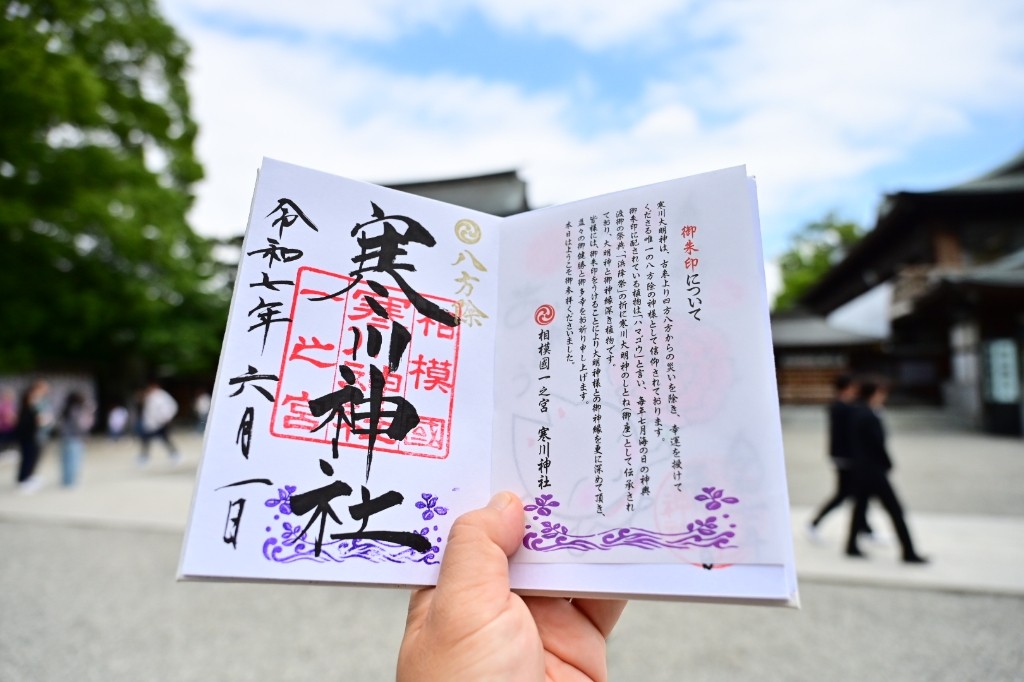 御朱印について
寒川大明神は、古来より四方八方からの災いを除き、幸運を授けて
くださる唯一の八方除の神様として信仰されております。
御朱印に配されている植物は「ハマゴウ」と言い、毎年七月海の日の神輿
渡御の祭典、「浜降祭」の折に寒川大明神のしとね(御座)として伝承され
ており、大明神と御神縁深き植物です。
皆様には、御朱印をうけることにより大明神様との御神縁を更に深めて頂き、
益々の御健勝と御多幸をお祈り申し上げます。
本日はようこそ御来拝くださいました。
相模國一之宮 寒川神社
八方除
寒川神社
相模國
寒川神社
一之宮
令和七年 六月 一日